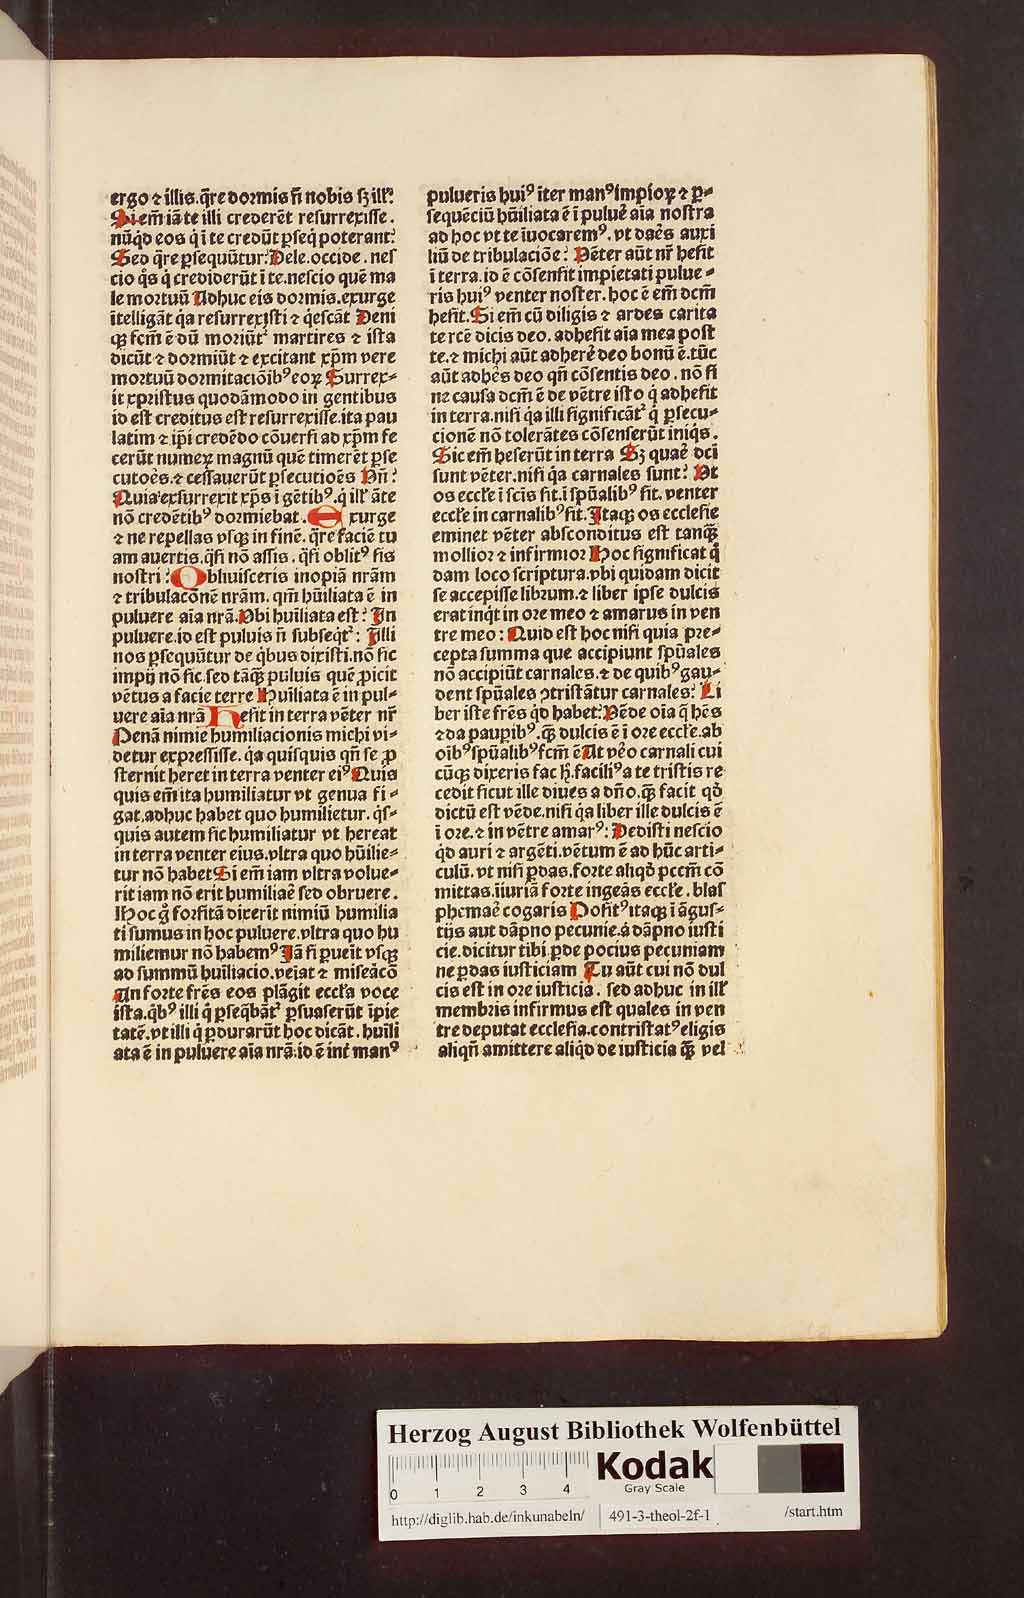 ergo ⁊ illis. q̄re dormis n̄ nobis sȝ illꝭ
Si em̄ iā te illi crederēt resurrexisse.
nūqd eos q̇ ī te credūt ꝑseq̇ poterant?
Sed q̄re ꝑsequūtur? Dele. occide. nes
cio q̇s q̇ crediderūt ī te. nescio quē ma
le mortuū Adhuc eis dormis. exurge
ītelligāt q̇a resurrexisti ⁊ q̇escāt Deni
qꝫ fcm̄ ē dū moriūt᷑ martires ⁊ ista
dicūt ⁊ dormiūt ⁊ excitant xp̄m vere
mortuū dormitaciōibꝰ eoꝝ Surrex-
it xpristus quodāmodo in gentibus
id est creditus est resurrexisse. ita pau
latim ⁊ ip̄i credēdo cōuersi ad xp̄m fe
cerūt numeꝝ magnū quē timerēt ꝑse
cutoēs. ⁊ cessauerūt ꝑsecutioēs Vn̄?
Quia exsurrexit xp̄s ī gētibꝰ. q̇ illꝭ āte
nō credētibꝰ dormiebat. Exurge
⁊ ne repellas vsqꝫ in finē. q̄re faciē tu
am auertis. q̇si nō assis. q̇si oblitꝰ sis
nostri? Obliuisceris inopiā nrām
⁊ tribulacōnē nrām. qm̄ hūiliata ē in
puluere aīa nrā. Vbi hūiliata est? In
puluere. id est puluis n̄ subseq̇t᷑: Illi
nos ꝑsequūtur de q̇bus dixisti. nō sic
impij nō sic. sed tāqꝫ puluis quē ꝓicit
vētus a facie terre Hūiliata ē in pul-
uere aīa nrā Hesit in terra vēter nr̄
Penā nimie humiliacionis michi vi-
detur expressisse. q̇a quisquis qn̄ se ꝓ
sternit heret in terra venter eiꝰ Quis
quis em̄ ita humiliatur vt genua fi-
gat. adhuc habet quo humilietur. q̇s-
quis autem sic humiliatur vt hereat
in terra venter eius. vltra quo hūilie-
tur nō habet Si em̄ iam vltra volue-
rit iam nō erit humiliaē sed obruere.
Hoc g̊ forsitā dixerit nimiū humilia
ti sumus in hoc puluere. vltra quo hu
miliemur nō habemꝰ Jā si ꝑueīt vsqꝫ
ad summū huīliacio. veīat ⁊ miseācō
An forte frēs eos plāgit eccl'a voce
ista. q̇bꝰ illi q̇ ꝑseq̇bāt᷑ ꝑsuaserūt īpie
tatē. vt illi q̇ ꝑdurarūt hoc dicāt. huīli
ata ē in puluere aīa nrā. id ē int̓ manꝰ
pulueris huiꝰ iter manꝰ impioꝝ ⁊ ꝑ-
sequēciū hūiliata ē ī pulue᷑ aīa nostra
ad hoc vt te īuocaremꝰ. vt daēs auxi
liū de tribulaciōe: Vēter aūt nr̄ hesit
ī terra. id ē cōsensit impietati pulue-
ris huiꝰ venter noster. hoc ē em̄ dcm̄
hesit. Si em̄ cū diligis ⁊ ardes carita
te rcē dicis deo. adhesit aīa mea post
te. ⁊ michi aūt adherē deo bonū ē. tūc
aūt adheˢ deo qn̄ cōsentis deo. nō si
ne causa dcm̄ ē de vētre isto q̇ adhesit
in terra. nisi q̇a illi significāt᷑ q̇ ꝑsecu-
cionē nō tolerātes cōsenserūt iniq̇s.
Sic em̄ heserūt in terra Sȝ quaē dci
sunt vēter. nisi q̇a carnales sunt? Vt
os eccl'e ī scīs sit. ī spūalibꝰ sit. venter
eccl'e in carnalibꝰ sit. Itaqꝫ os ecclesie
eminet vēter absconditus est tanqꝫ
mollior ⁊ infirmior Hoc significat q̇
dam loco scriptura. vbi quidam dicit
se accepisse librum. ⁊ liber ipse dulcis
erat inq̇t in ore meo ⁊ amarus in ven
tre meo: Quid est hoc nisi quia pre-
cepta summa que accipiunt spūales
nō accipiūt carnales. ⁊ de quibꝰ gau-
dent spūales ꝯtristātur carnales? Li
ber iste frēs q̇d habet? Vēde oīa q̄ hēs
⁊ da pauꝑibꝰ. qꝫ dulcis ē ī ore eccl'e. ab
oībꝰ spūalibꝰ fcm̄ ē At veo carnali cui
cūqꝫ dixeris fac h̄. faciliꝰ a te tristis re
cedit sicut ille diues a dn̄o. qꝫ facit qd̄
dictū est vēde. nisi q̇a liber ille dulcis ē
ī ore. ⁊ in vētre amarꝰ: Dedisti nescio
q̇d auri ⁊ argēti. vētum ē ad hūc arti-
culū. vt nisi ꝑdas. forte aliqd̄ pccm̄ cō
mittas. īiuriā forte ingeās eccl'e. blas
phemaē cogaris Positꝰ itaqꝫ ī āgus-
tijs aut dāpno pecunie. a dāpno iusti
cie. dicitur tibi ꝑde pocius pecuniam
ne ꝑdas iusticiam Tu aūt cui nō dul
cis est in ore iusticia. sed adhuc in illꝭ
membris infirmus est quales in ven
tre deputat ecclesia. contristatꝰ eligis
aliqn̄ amittere aliqd̄ de iusticia qꝫ vel
Herzog August Bibliothek Wolfenbüttel
0 1 2 3 4
Kodak
Gray Scale
http://diglib.hab.de/inkunabeln/ 491-3-theol-2f-1 /start.htm